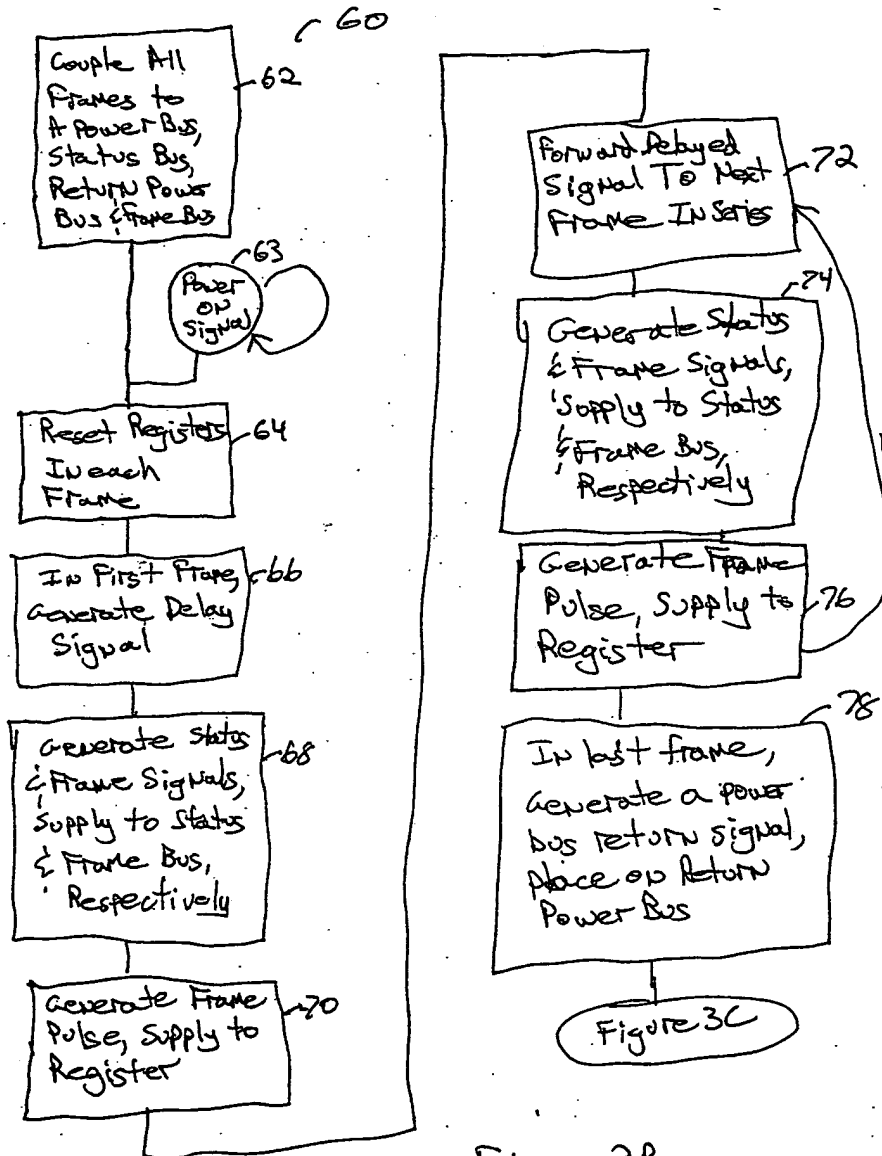 60
Couple All
Frames to
A Power Bus,
Status Bus,
Return Power
Bus & Frame Bus
62
63
Power
ON
Signal
Reset Registers
In each
Frame
64
In First Frame,
Generate Delay
Signal
66
Generate Status
& Frame Signals,
Supply to Status
& Frame Bus,
Respectively
68
Generate Frame
Pulse, Supply to
Register
70
Forward Delayed
Signal To Next
Frame In Series
72
74
Generate Status
& Frame Signals,
Supply to Status
& Frame Bus,
Respectively
Generate Frame
Pulse, Supply to
Register
76
78
In last frame,
Generate a power
bus return signal,
place on Return
Power Bus
Figure 3C